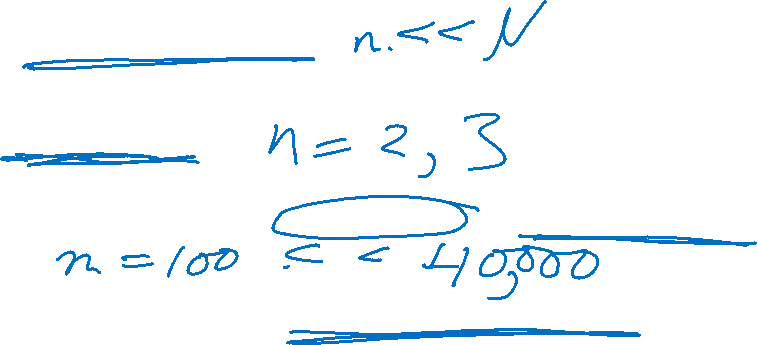 n << N
n = 2, 3
n = 100 << 40,000